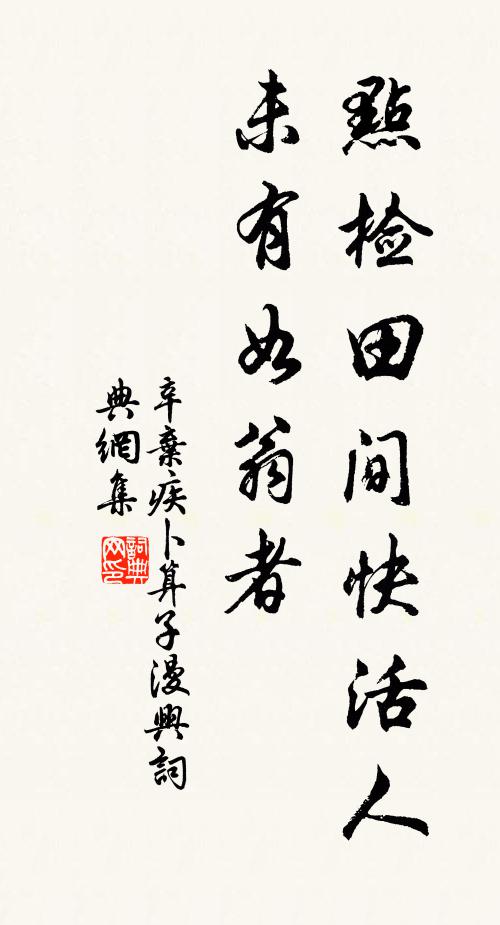 點檢田间快活人
未有如翁者
辛棄疾卜算子漫興詞
典網集
詞典
网印